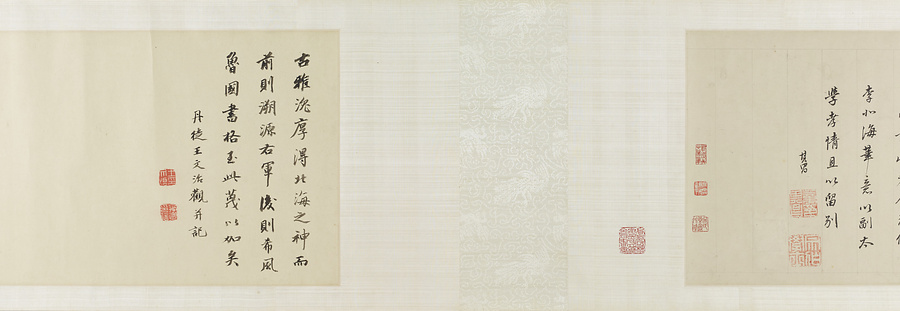 李北海筆意以副太
學孝情且以留別
其昌
古雅沈厚得北海之神而
前則溯源右軍後則希風
魯國書格至此蔑以加矣
丹徒王文治觀并記